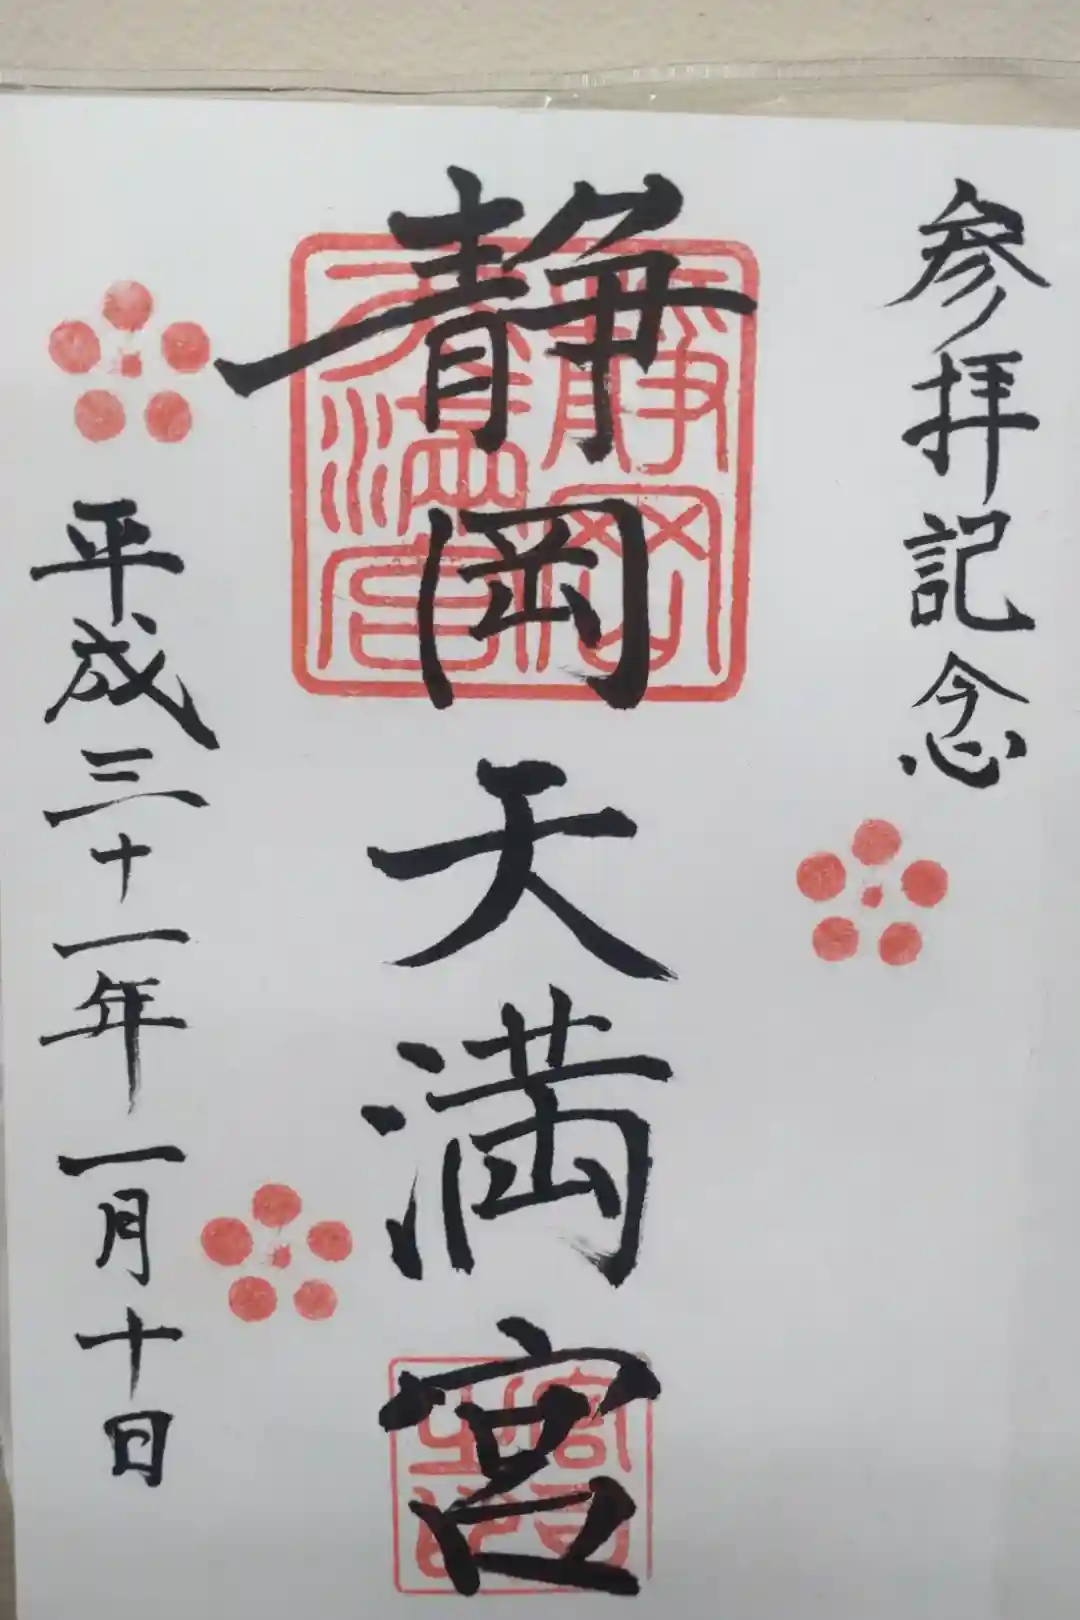 参拝記念
静岡天満宮
静岡
天満宮
宮司
之印
平成三十一年一月十日